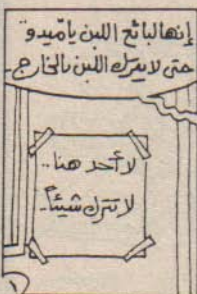 إنها لبائع اللبن يا تميدو
حتى لا يترك اللبن بالخارج.
لا أحد هنا..
لا تترك شيئاً.
١